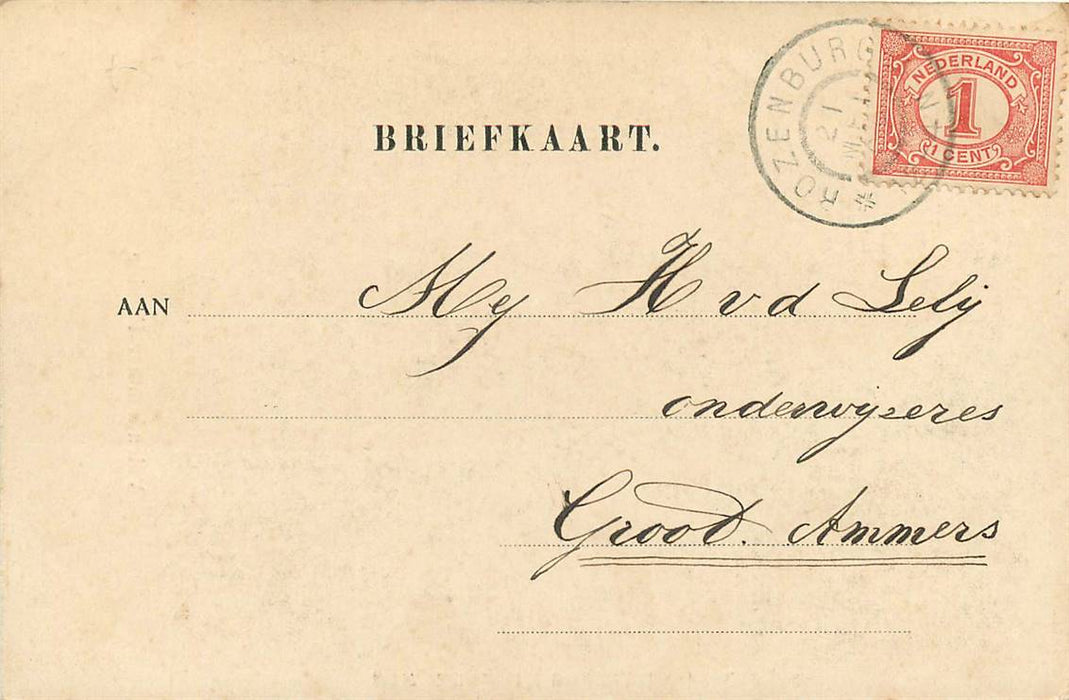 ROZENBURG
21
MEI
NEDERLAND
1
1 CENT
BRIEFKAART.
AAN Mej H v d Lely
onderwijzeres
Groot. Ammers